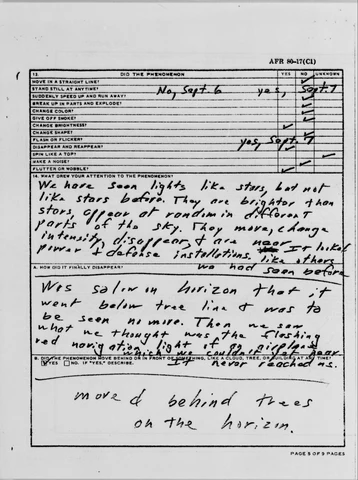 AFR 80-17(C1)
13. DID THE PHENOMENON YES NO UNKNOWN
MOVE IN A STRAIGHT LINE?
STAND STILL AT ANYTIME? No, Sept. 6 yes, Sept. 7
SUDDENLY SPEED UP AND RUN AWAY?
BREAK UP IN PARTS AND EXPLODE?
CHANGE COLOR?
GIVE OFF SMOKE?
CHANGE BRIGHTNESS?
CHANGE SHAPE?
FLASH OR FLICKER? yes, Sept. 7
DISAPPEAR AND REAPPEAR?
SPIN LIKE A TOP?
MAKE A NOISE?
FLUTTER OR WOBBLE?
14. WHAT DREW YOUR ATTENTION TO THE PHENOMENON?
We have seen lights like stars, but not
like stars before. They are brighter than
stars, appear at random in different
parts of the sky. They move, change
intensity, disappear, & are near It looked
power & defense installations. like others
we had seen before
A. HOW DID IT FINALLY DISAPPEAR?
Was so low on horizon that it
went below tree line & was to
be seen no more. Then we saw
what we thought was the flashing
red navigation light of an airplane
which we couldn't hear
It never reached us.
B. DID THE PHENOMENON MOVE BEHIND OR IN FRONT OF SOMETHING, LIKE A CLOUD, TREE, OR BUILDING AT ANY TIME?
YES NO. IF "YES," DESCRIBE.
moved behind trees
on the horizon.
PAGE 5 OF 9 PAGES